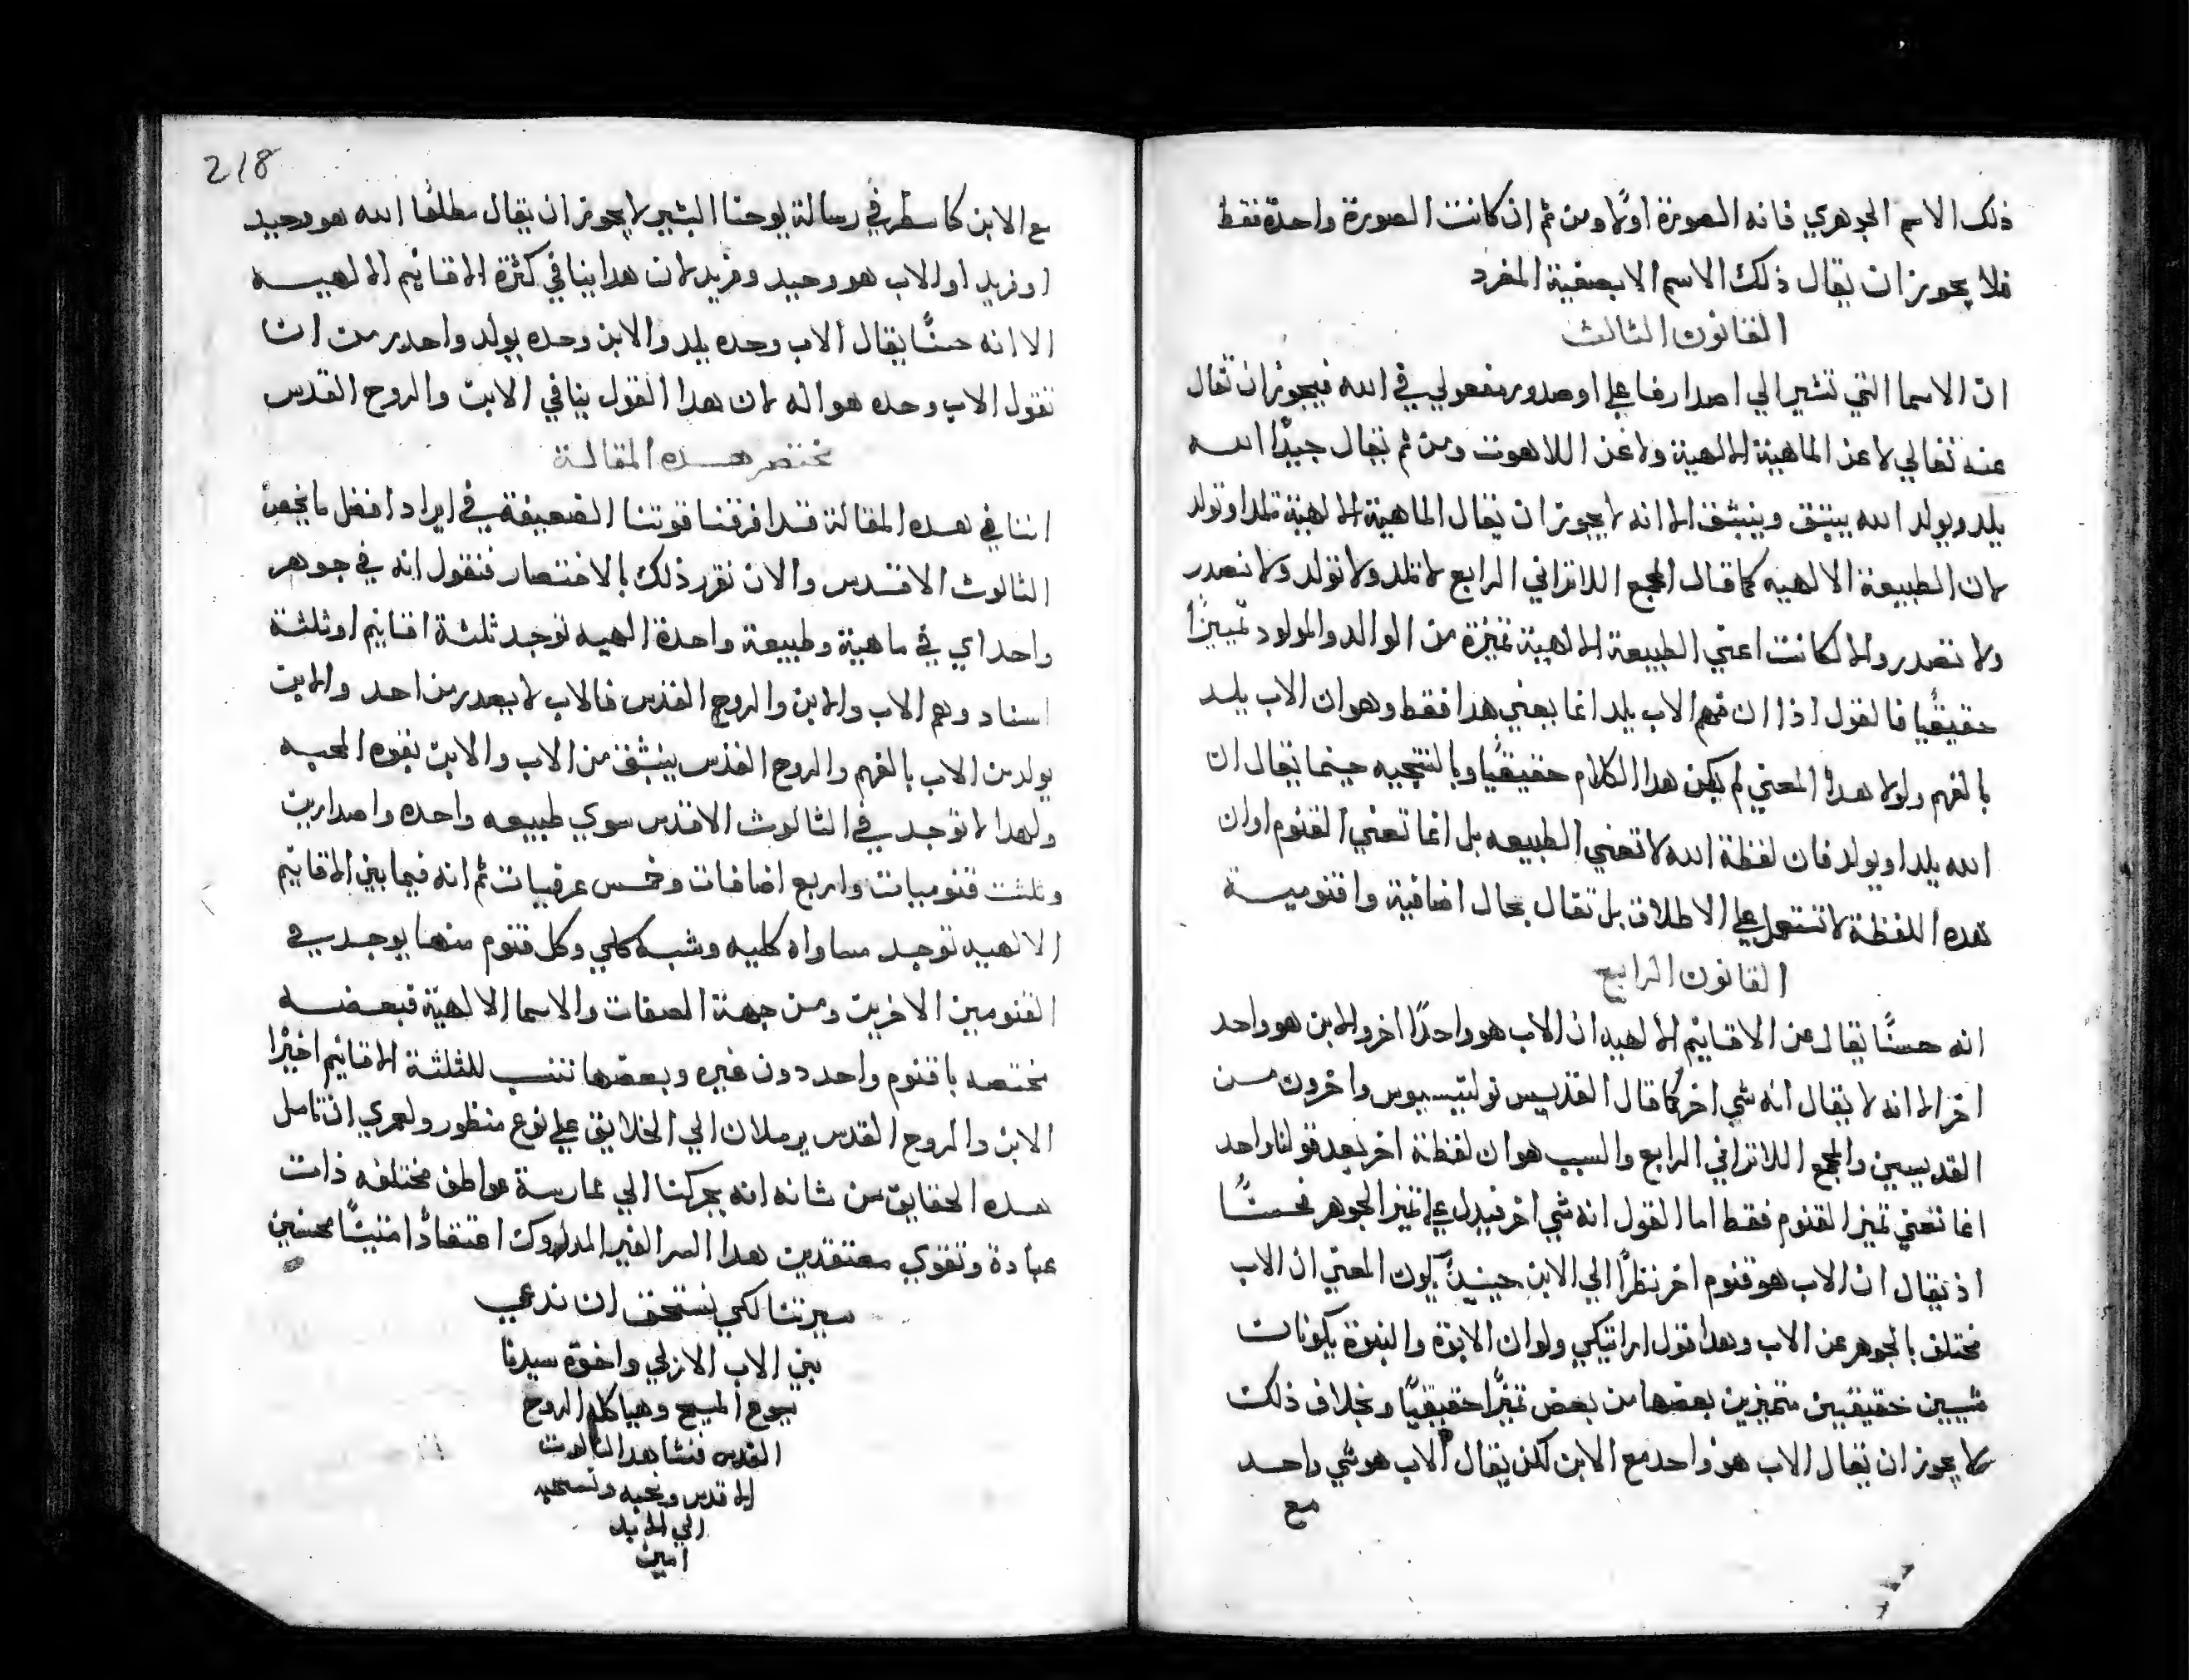 ذلك الاسم الجوهري فانه الصورة اولا ومن ثم ان كانت الصورة واحدة فقط
فلا يجوز ان يقال ذلك الاسم الا بصفية المفرد
القانون الثالث
ان الاسما التي تشير الي اصدار فاعلي او صدور مفعولي في الله فيجوز ان تقال
عنه تعالي لا عن الماهية الالهية ولا عن اللاهوت ومن ثم يقال جيدًا الله
يلد ويولد الله يبثق وينبثق الا انه لا يجوز ان يقال الماهية الالهية تلد او تولد
لان الطبيعة الالهيه كما قال المجمع اللاتراني الرابع لا تلد ولا تولد ولا تصدر
ولا تصدر والا لكانت اعني الطبيعة الالهية تميزة من الوالد والمولود تمييزًا
حقيقيًا فالقول اذا ان فهم الاب يلد انما يعني هدا فقط وهو ان الاب يلد
بالفهم ولولا هدا المعني لم يكن هدا الكلام حقيقيًا وبالنتيجيه حينما يقال ان
الله يلد او يولد فان لفظة الله لا تعني الطبيعه بل انما تعني القنوم او ان
هده اللفظة لا تستعمل علي الاطلاق بل تقال بحال اضافية واقنوميـة
القانون الرابع
انه حسنًا يقال عن الاقانيم الالهيه ان الاب هو واحدًا اخر والابن هو واحد
اخر الا انه لا يقال انه شي اخر كما قال القديس واخرون من
القديسين والمجمع اللاتراني الرابع والسبب هو ان لفظة اخر بعد قولنا واحد
انما تعني تميز القنوم فقط اما القول انه شي اخر فيدل علي تميز الجوهر فحسنًا
اذ يقال ان الاب هو قنوم اخر نظرًا الي الابن حينيدٍ يكون المعني ان الاب
مختلف بالجوهر عن الاب وهدا قول اراتيكي ولو ان الابوة والبنوة يكونان
شييين حقيقيين متميزين بعضها من بعض تميزًا حقيقيًا وبخلاف ذلك
لا يجوز ان يقال الاب هو واحد مع الابن لكن يقال الاب هو شي واحد
مع
218
مع الابن كما سطر في رسالة يوحنا البشير لا يجوز ان يقال مطلقًا الله هو وحيد
او فريد او الاب هو وحيد وفريد لان هدا ينافي كثرة الاقانيم الالهيـه
الا انه حسنًا يقال الاب وحده يلد والابن وحده يولد واحدر من ان
تقول الاب وحده هو اله لان هدا القول ينافي الابن والروح القدس
مختصر هـده المقالـة
اننا في هده المقالة قد افرغنا قوتنا الضعيفة في ايراد افضل ما يخص
الثالوث الاقدس والان نقرر ذلك بالاختصار فنقول انه في جوهر
واحد اي في ماهية وطبيعة واحدة الهيه توجد ثلثـة اقانيم او ثلثـة
اسناد وهم الاب والابن والروح القدس فالاب لا يصدر من احد والابن
يولد من الاب بالفهم والروح القدس ينبثق من الاب والابن بقوه المحبه
ولهدا لا توجد في الثالوث الاقدس سوي طبيعه واحده واصدارين
وثلث قنوميات واربع اضافات وخمس عرفيات ثم انه فيما بين الاقانيم
الالهيه توجد مساواه كليه وشبـه كلي وكل قنوم منها يوجد في
القنومين الاخرين ومن جهة الصفات والاسما الالهية فبعضـه
مختصه باقنوم واحد دون غيره وبعضها تنسب للثلثـة الاقانيم اخيرًا
الابن والروح القدس يرسلان الي الخلايق علي نوع منظور ولعمري ان تامل
هـده الحقايق من شانه انه يحركنا الي ممارسة عواطف مختلفه ذات
عبادة وتقوي معتقدين هدا السر الغير المدروك اعتقادًا متينًا محسنين
سيرتنا لكي نستحق ان ندعي
بني الاب الازلي واخوة سيدنا
يسوع المسيح وهياكل الروح
القدس فنشاهد الثالوث
الاقدس ونحبه ونسبحه
الي الابد
امين